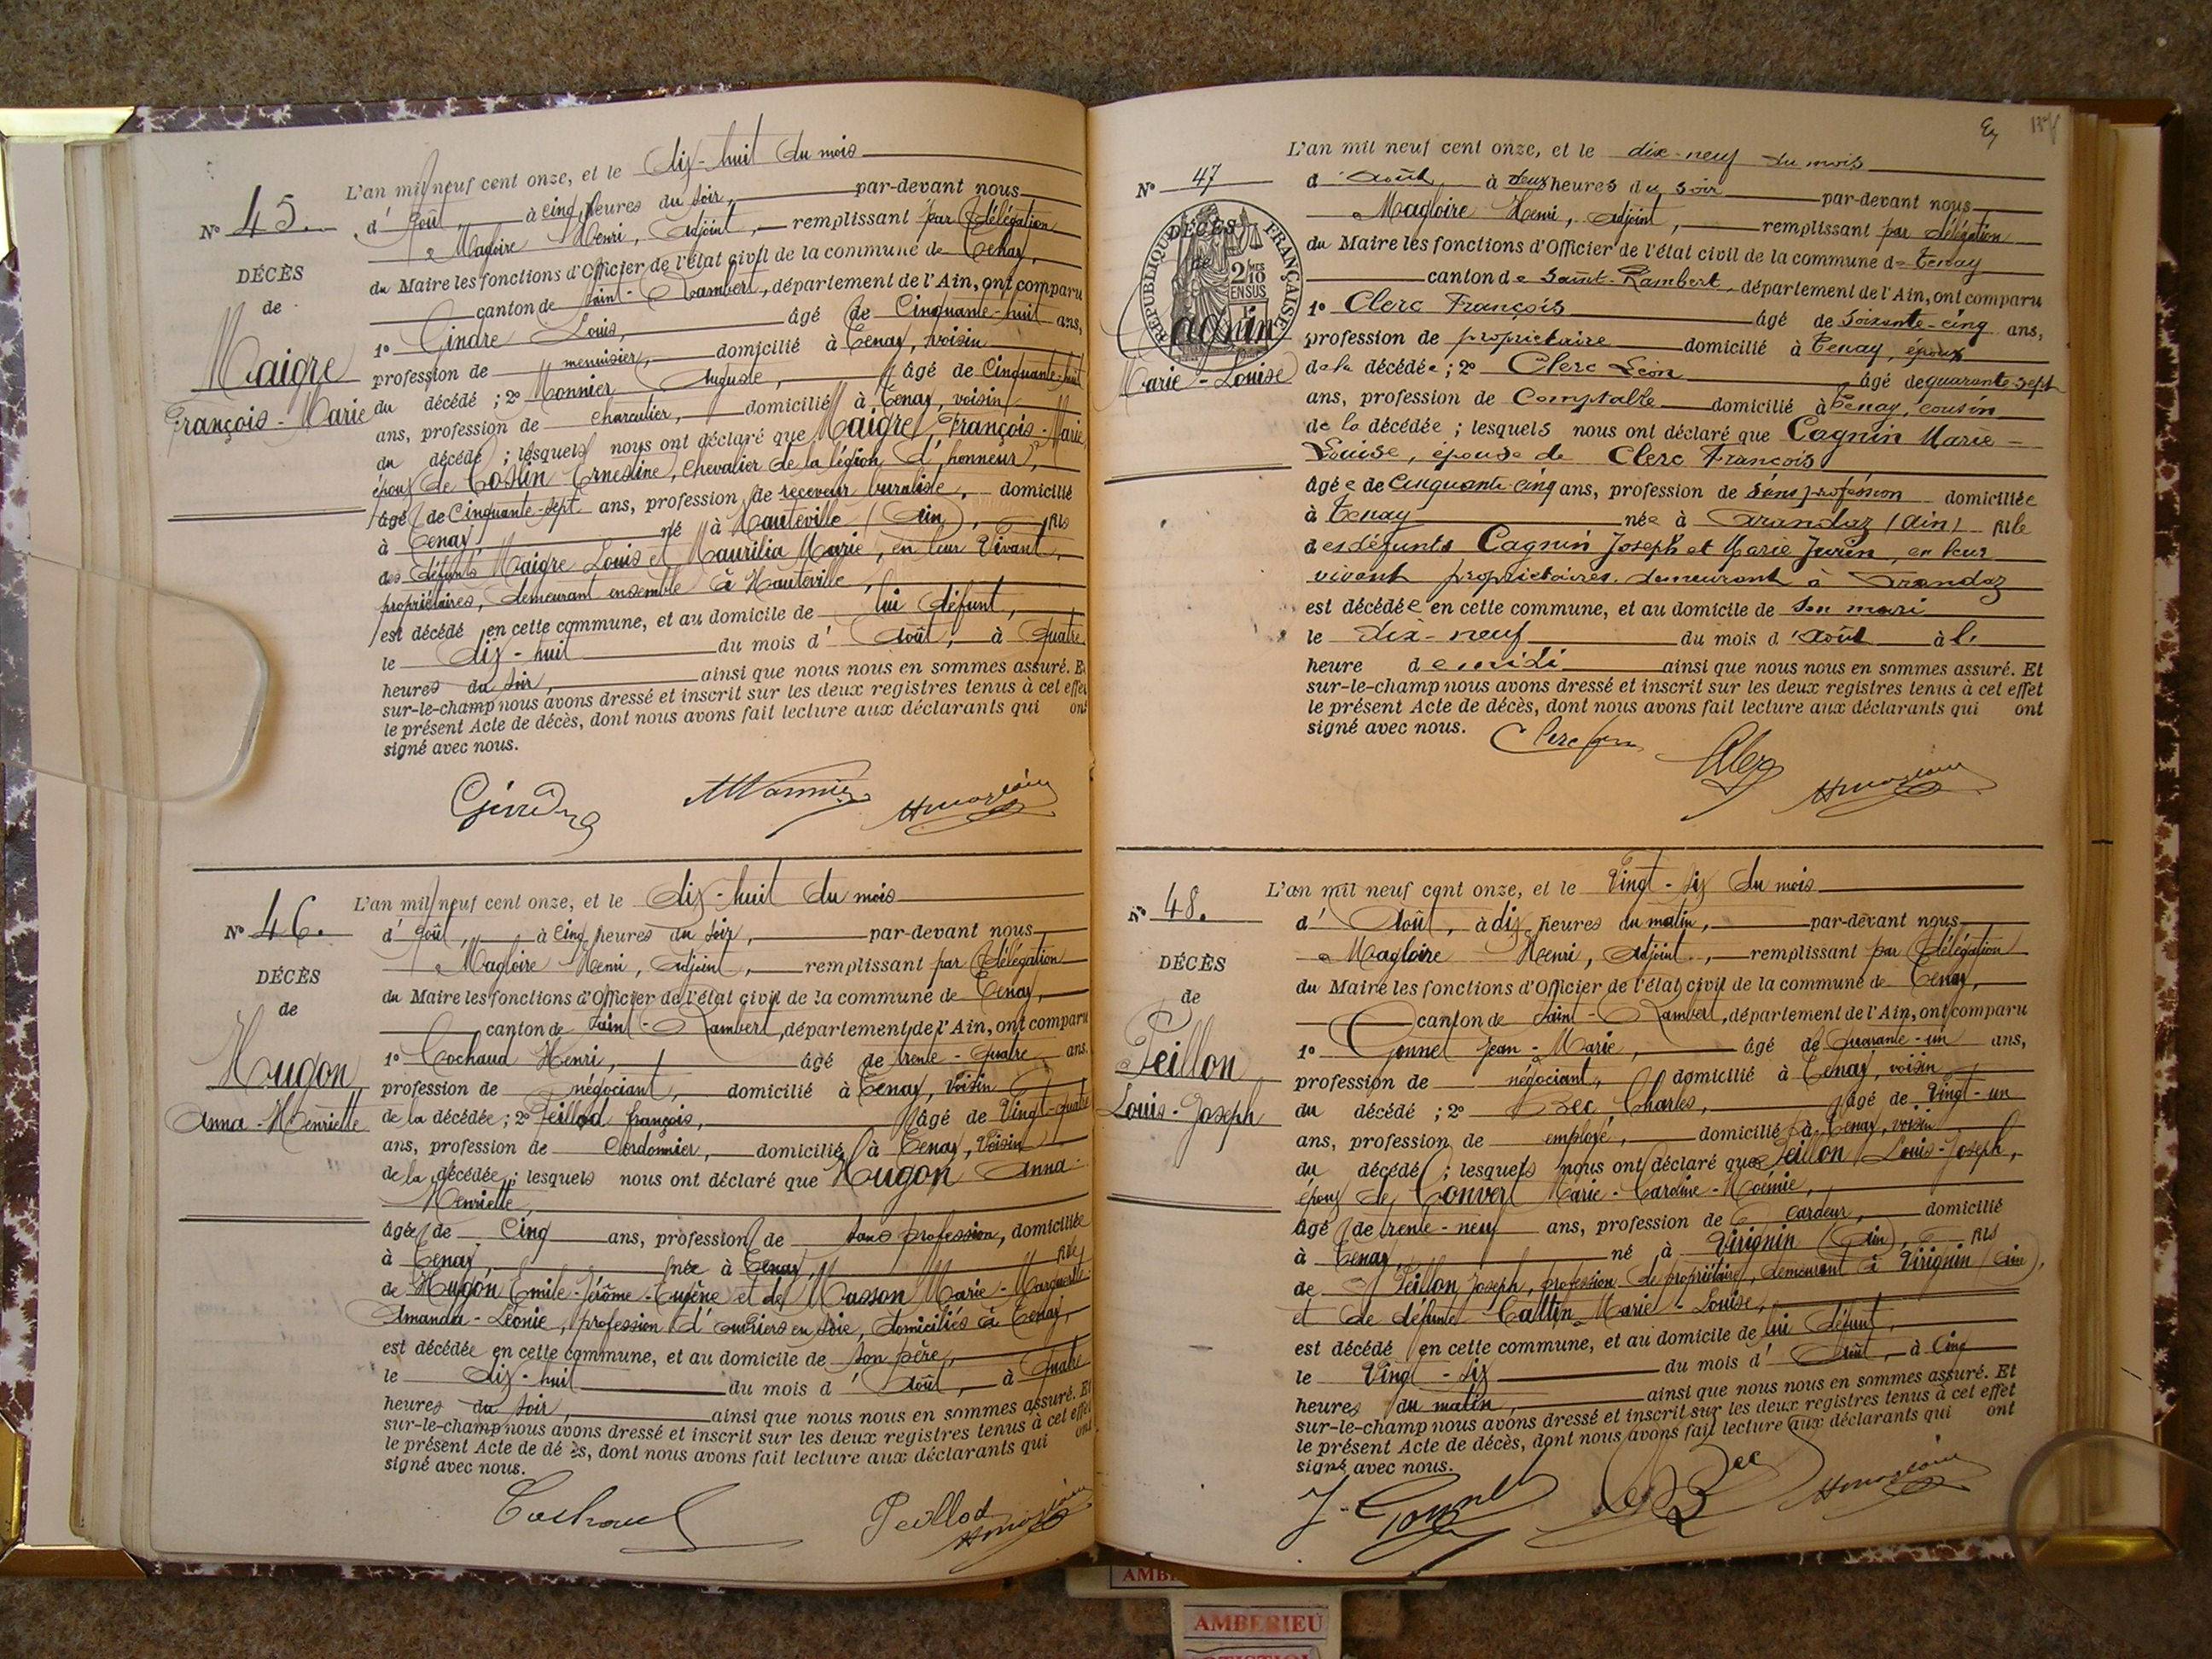 L'an mil neuf cent onze, et le dix-huit du mois
d'Août, à cinq heures du soir, par-devant nous
Magloire Henri, adjoint, remplissant par délégation
du Maire les fonctions d'Officier de l'état civil de la commune de Tenay,
canton de Saint-Rambert, département de l'Ain, ont comparu
1º Gindre Louis, âgé de Cinquante-huit ans,
profession de menuisier, domicilié à Tenay, voisin
du décédé ; 2º Monnier Auguste, âgé de Cinquante-huit
ans, profession de charcutier, domicilié à Tenay, voisin
du décédé ; lesquels nous ont déclaré que Maigre François-Marie,
époux de Cossin Ernestine, chevalier de la légion d'honneur,
âgé de Cinquante-sept ans, profession de receveur buraliste, domicilié
à Tenay né à Hauteville (Ain), fils
des défunts Maigre Louis et Maurilia Marie, en leur Vivant,
propriétaires, demeurant ensemble à Hauteville,
est décédé en cette commune, et au domicile de lui défunt,
le dix-huit du mois d'Août, à Quatre
heures du soir, ainsi que nous nous en sommes assuré. Et
sur-le-champ nous avons dressé et inscrit sur les deux registres tenus à cet effet
le présent Acte de décès, dont nous avons fait lecture aux déclarants qui ont
signé avec nous.
Nº 45.
DÉCÈS
de
Maigre
François-Marie
L'an mil neuf cent onze, et le dix-huit du mois
d'Août, à cinq heures du soir, par-devant nous
Magloire Henri, adjoint, remplissant par délégation
du Maire les fonctions d'Officier de l'état civil de la commune de Tenay,
canton de Saint-Rambert, département de l'Ain, ont comparu
1º Cochaud Henri, âgé de trente-quatre ans.
profession de négociant, domicilié à Tenay, voisin
de la décédée ; 2º Peillod françois, âgé de Vingt-quatre
ans, profession de Cordonnier, domicilié à Tenay, Voisin
de la décédée ; lesquels nous ont déclaré que Hugon Anna-
Henriette,
âgée de Cinq ans, profession de sans profession, domiciliée
à Tenay, née à Tenay, fille
de Hugon Emile-Jérôme-Eugène et de Masson Marie-Marguerite
Amanda-Léonie, profession d'ouvriers en soie, domiciliés à Tenay,
est décédée en cette commune, et au domicile de son père,
le dix-huit du mois d'Août, à Quatre
heures du soir, ainsi que nous nous en sommes assuré. Et
sur-le-champ nous avons dressé et inscrit sur les deux registres tenus à cet effet
le présent Acte de décès, dont nous avons fait lecture aux déclarants qui ont
signé avec nous.
Cochaud Peillod
Nº 46.
DÉCÈS
de
Hugon
Anna-Henriette
L'an mil neuf cent onze, et le dix-neuf du mois
d'août à deux heures du soir par-devant nous
Magloire Henri, adjoint, remplissant par délégation
du Maire les fonctions d'Officier de l'état civil de la commune de Tenay
canton de Saint-Rambert, département de l'Ain, ont comparu
1º Clerc François âgé de soixante-cinq ans,
profession de propriétaire domicilié à Tenay, époux
de la décédée ; 2º Clerc Léon âgé de quarante sept
ans, profession de Comptable domicilié à Tenay, cousin
de la décédée ; lesquels nous ont déclaré que Cagnin Marie-
Louise, épouse de Clerc François
âgée de Cinquante cinq ans, profession de sans profession domiciliée
à Tenay née à Arandaz (Ain) fille
des défunts Cagnin Joseph et Marie Jurin, en leur
vivant propriétaires, demeurant à Arandaz
est décédée en cette commune, et au domicile de son mari
le dix-neuf du mois d'août à l'
heure de midi ainsi que nous nous en sommes assuré. Et
sur-le-champ nous avons dressé et inscrit sur les deux registres tenus à cet effet
le présent Acte de décès, dont nous avons fait lecture aux déclarants qui ont
signé avec nous.
Nº 47
DÉCÈS
de
Cagnin
Marie-Louise
RÉPUBLIQUE FRANÇAISE
2/10 MES
EN SUS
L'an mil neuf cent onze, et le Vingt-six du mois
d'Août, à dix heures du matin, par-devant nous
Magloire Henri, adjoint, remplissant par délégation
du Maire les fonctions d'Officier de l'état civil de la commune de Tenay,
canton de Saint-Rambert, département de l'Ain, ont comparu
1º Gonnet Jean-Marie, âgé de Quarante-un ans,
profession de négociant, domicilié à Tenay, voisin
du décédé ; 2º Bec Charles, âgé de Vingt-un
ans, profession de employé, domicilié à Tenay, voisin
du décédé ; lesquels nous ont déclaré que Peillon Louis-Joseph,
époux de Convert Marie-Caroline-Noémie,
âgé de trente-neuf ans, profession de cardeur, domicilié
à Tenay, né à Virignin (Ain), fils
de Peillon Joseph, profession de propriétaire, demeurant à Virignin (Ain),
et de défunte Cattin Marie-Louise,
est décédé en cette commune, et au domicile de lui défunt,
le Vingt-six du mois d'Août, à Cinq
heures du matin, ainsi que nous nous en sommes assuré. Et
sur-le-champ nous avons dressé et inscrit sur les deux registres tenus à cet effet
le présent Acte de décès, dont nous avons fait lecture aux déclarants qui ont
signé avec nous.
Nº 48.
DÉCÈS
de
Peillon
Louis-Joseph
AMBERIEU